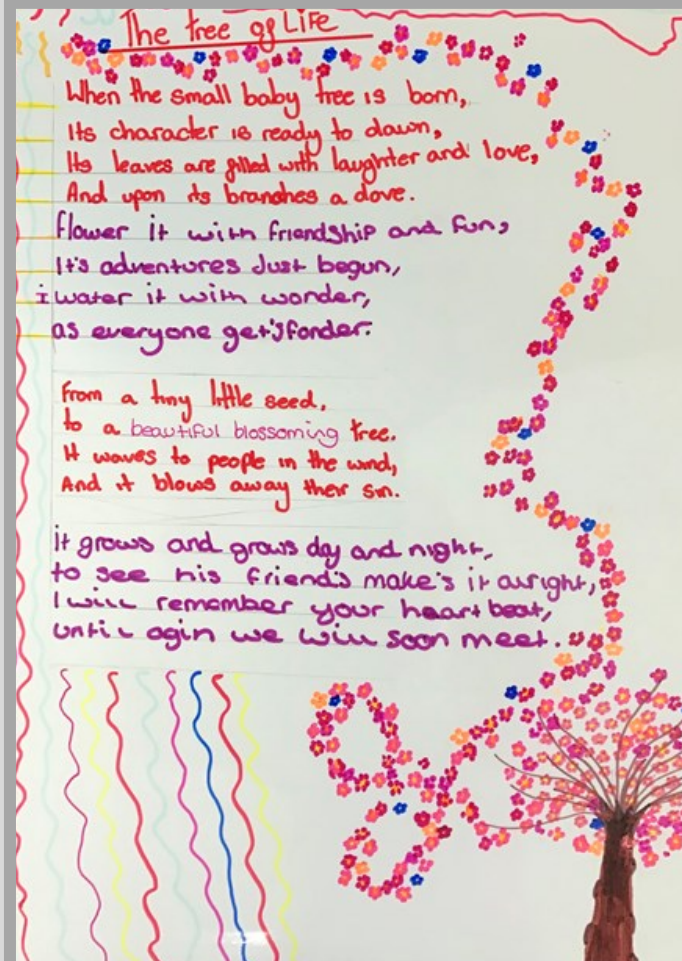 The tree of Life
When the small baby tree is born,
Its character is ready to dawn,
Its leaves are filled with laughter and love,
And upon its branches a dove.
flower it with friendship and fun,
It's adventures Just begun,
i water it with wonder,
as everyone get's fonder.
From a tiny little seed,
to a beautiful blossoming tree.
It waves to people in the wind,
And it blows away their sin.
it grows and grows day and night,
to see his friend's make's it alright,
I will remember your heart beat,
until agin we will soon meet.